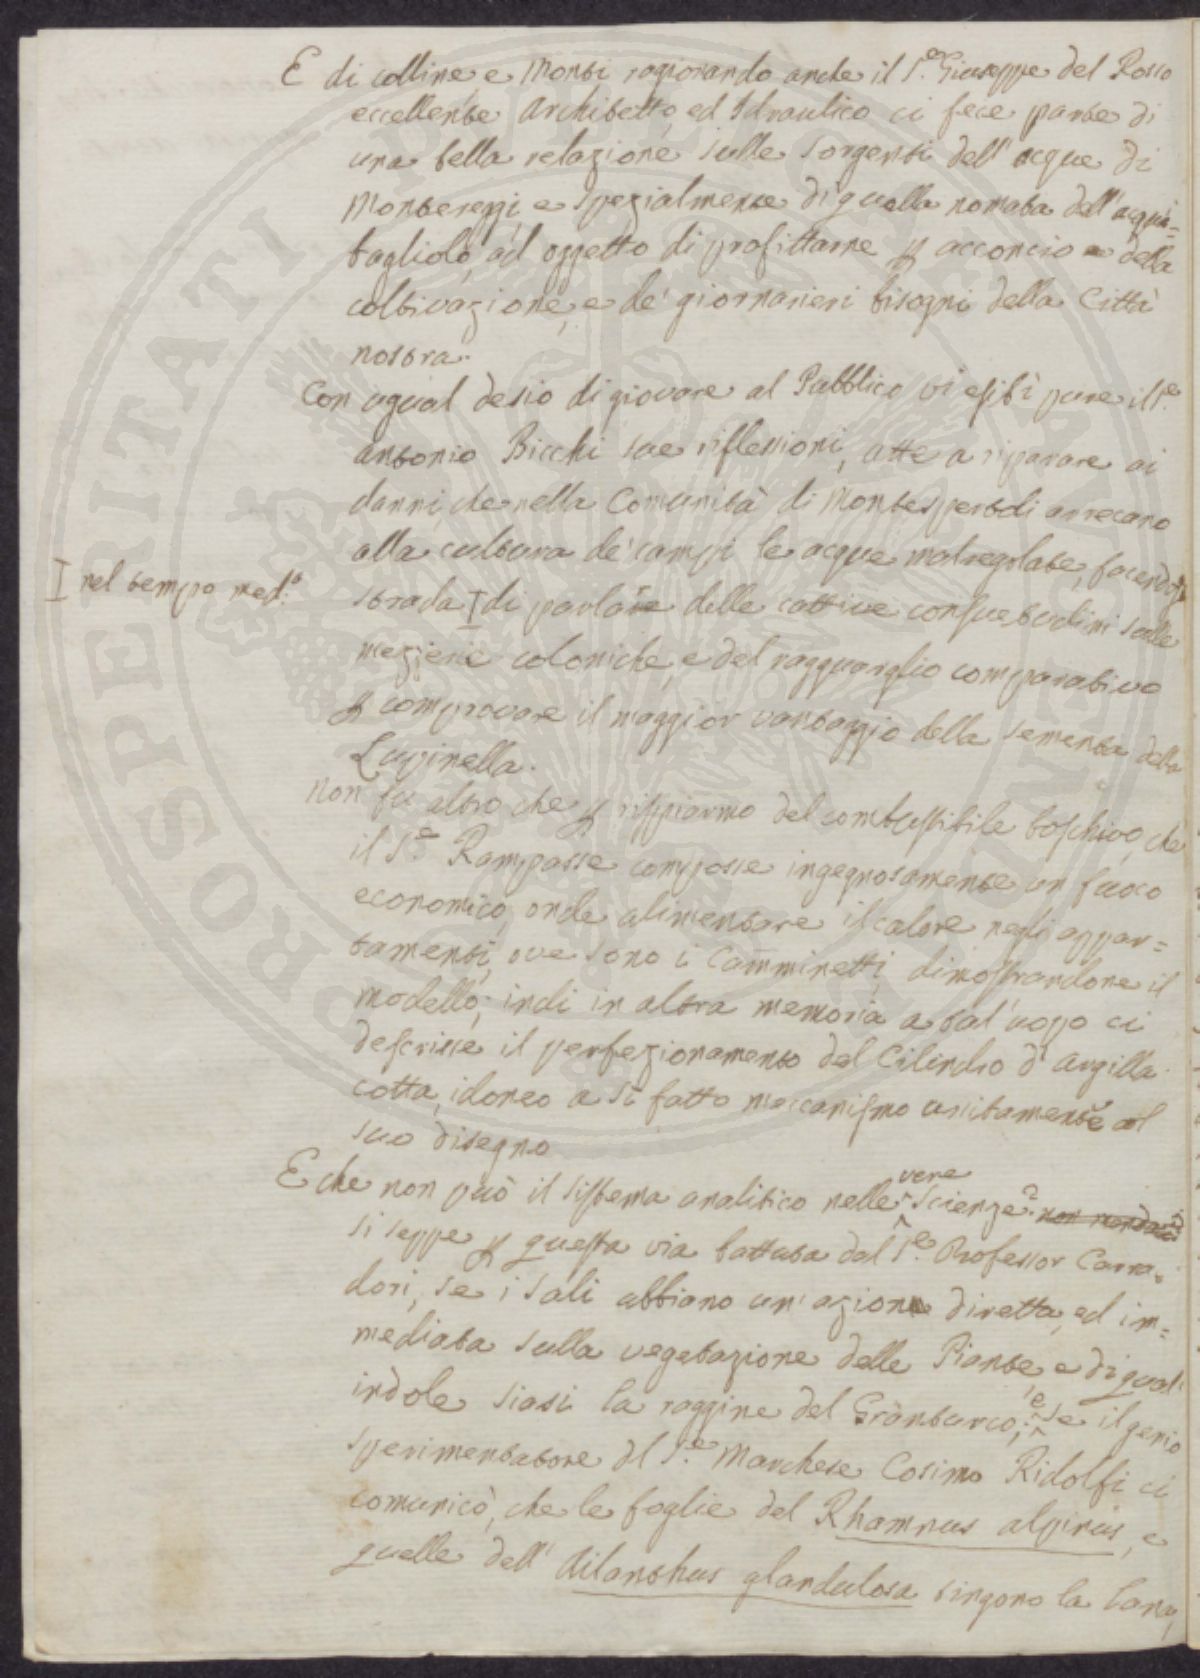 E di colline e Monti ragionando anche il S.r Giuseppe del Rosso
eccellente Architetto, ed Idraulico ci fece parte di
una bella relazione sulle sorgenti dell'acque di
Montereggi, e spezialmente di quella nomata dell'acqua=
tagliolo, ad oggetto di profittarne p acconcio della
coltivazione, e de' giornarieri bisogni della Città
nostra.
Con ugual desio di giovare al Pubblico vi esibì pure il S.r
Antonio Bicchi sue riflessioni, atte a riparare ai
danni, che nella Comunità di Montespertoli arrecano
alla cultura de' campi le acque malregolate, facendosi
I nel tempo med.o
strada I di parlare delle cattive consuetudini sulle
mezzerie coloniche, e del ragguaglio comparativo
p comprovare il maggior vantaggio della sementa della
Lupinella.
Non fu altro che p rispiarmo del combustibile boschivo, che
il S.r Rampasse compose ingegnosamente un fuoco
economico, onde alimentare il calore negli appar=
tamenti, ove sono i Camminetti, dimostrandone il
modello; indi in altra memoria a tal'uopo ci
descrisse il perfezionamento del Cilindro d'argilla
cotta, idoneo a sì fatto meccanismo unitamente al
suo disegno
E che non può il sistema analitico nelle vere scienze?
si seppe p questa via battuta dal S.r Professor Carra=
dori, se i Sali abbiano un'azione diretta, ed im=
mediata sulla vegetazione delle Piante, e di qual'
indole siasi la ruggine del Granturco; e se il genio
sperimentatore del S.r Marchese Cosimo Ridolfi ci
comunicò, che le foglie del Rhamnus alpinus, e
quelle dell'Ailanthus glandulosa tingono la lana,
PROSPERITATI PUBLICAE AUGENDAE